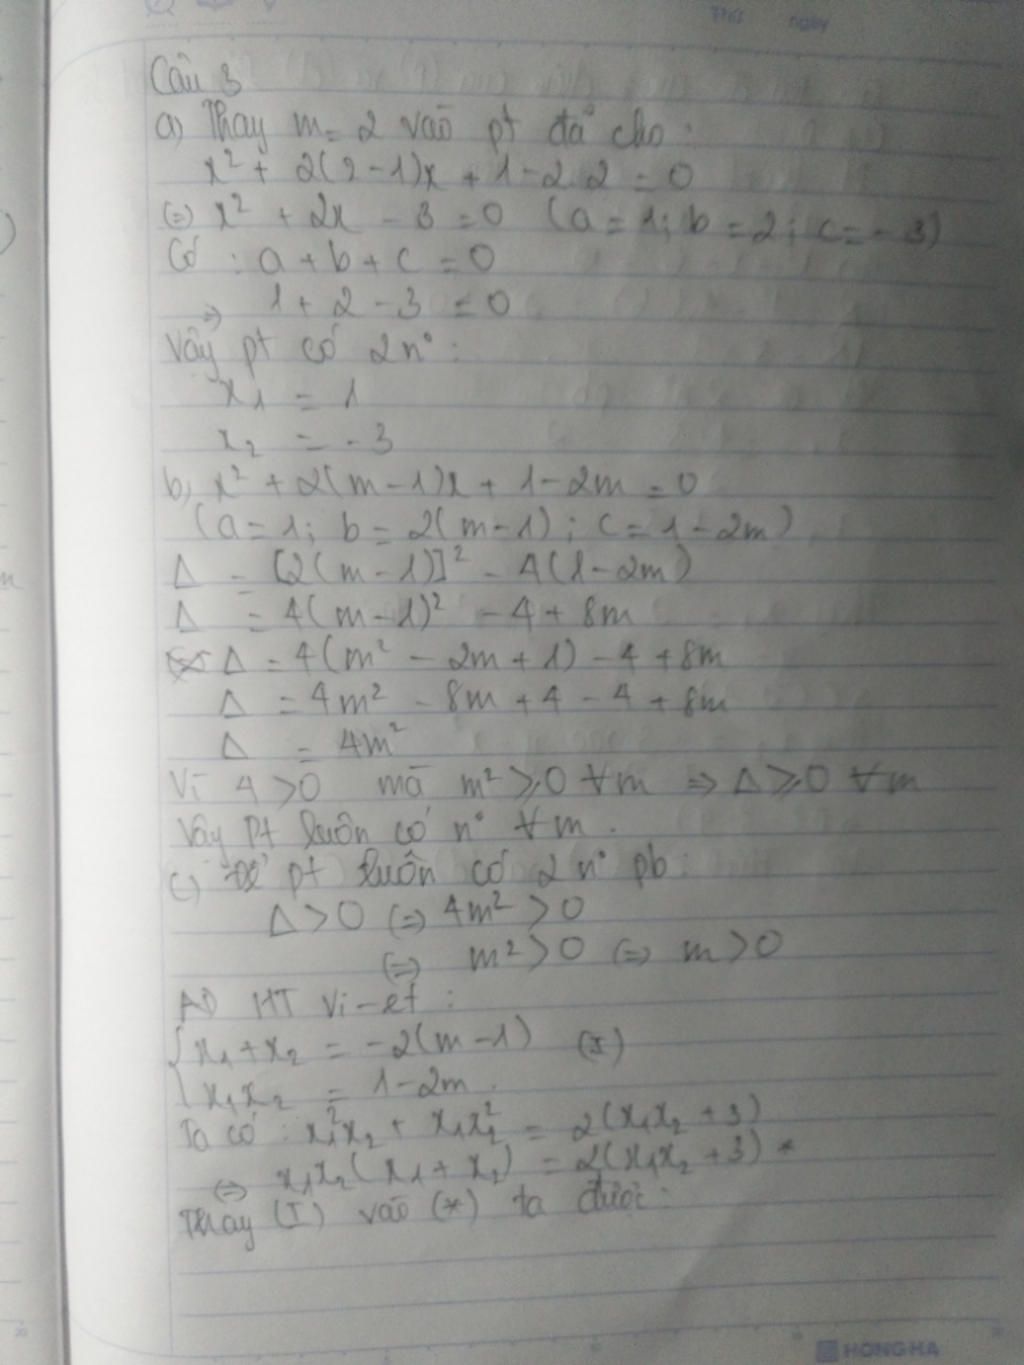 Thứ ngày
Câu 3
a) Thay m = 2 vào pt đã cho :
x² + 2(2-1)x + 1-2.2 = 0
(=) x² + 2x - 3 = 0 (a = 1; b = 2; c = -3)
Có : a + b + c = 0
=> 1 + 2 - 3 = 0
Vậy pt có 2 n° :
x₁ = 1
x₂ = -3
b) x² + 2(m-1)x + 1-2m = 0
(a = 1; b = 2(m-1); c = 1-2m)
Δ = [2(m-1)]² - 4(1-2m)
Δ = 4(m-1)² - 4 + 8m
Δ = 4(m² - 2m + 1) - 4 + 8m
Δ = 4m² - 8m + 4 - 4 + 8m
Δ = 4m²
Vì 4 > 0 mà m² ≥ 0 ∀m => Δ ≥ 0 ∀m
Vậy Pt luôn có n° ∀m .
c) Để pt luôn có 2 n° pb :
Δ > 0 (=) 4m² > 0
(=) m² > 0 (=) m > 0
AD HT Vi-et :
{ x₁ + x₂ = -2(m-1) (I)
{ x₁x₂ = 1-2m .
Ta có : x₁²x₂ + x₁x₂² = 2(x₁x₂ + 3)
(=) x₁x₂(x₁ + x₂) = 2(x₁x₂ + 3) *
Thay (I) vào (*) ta được :
HONG HA